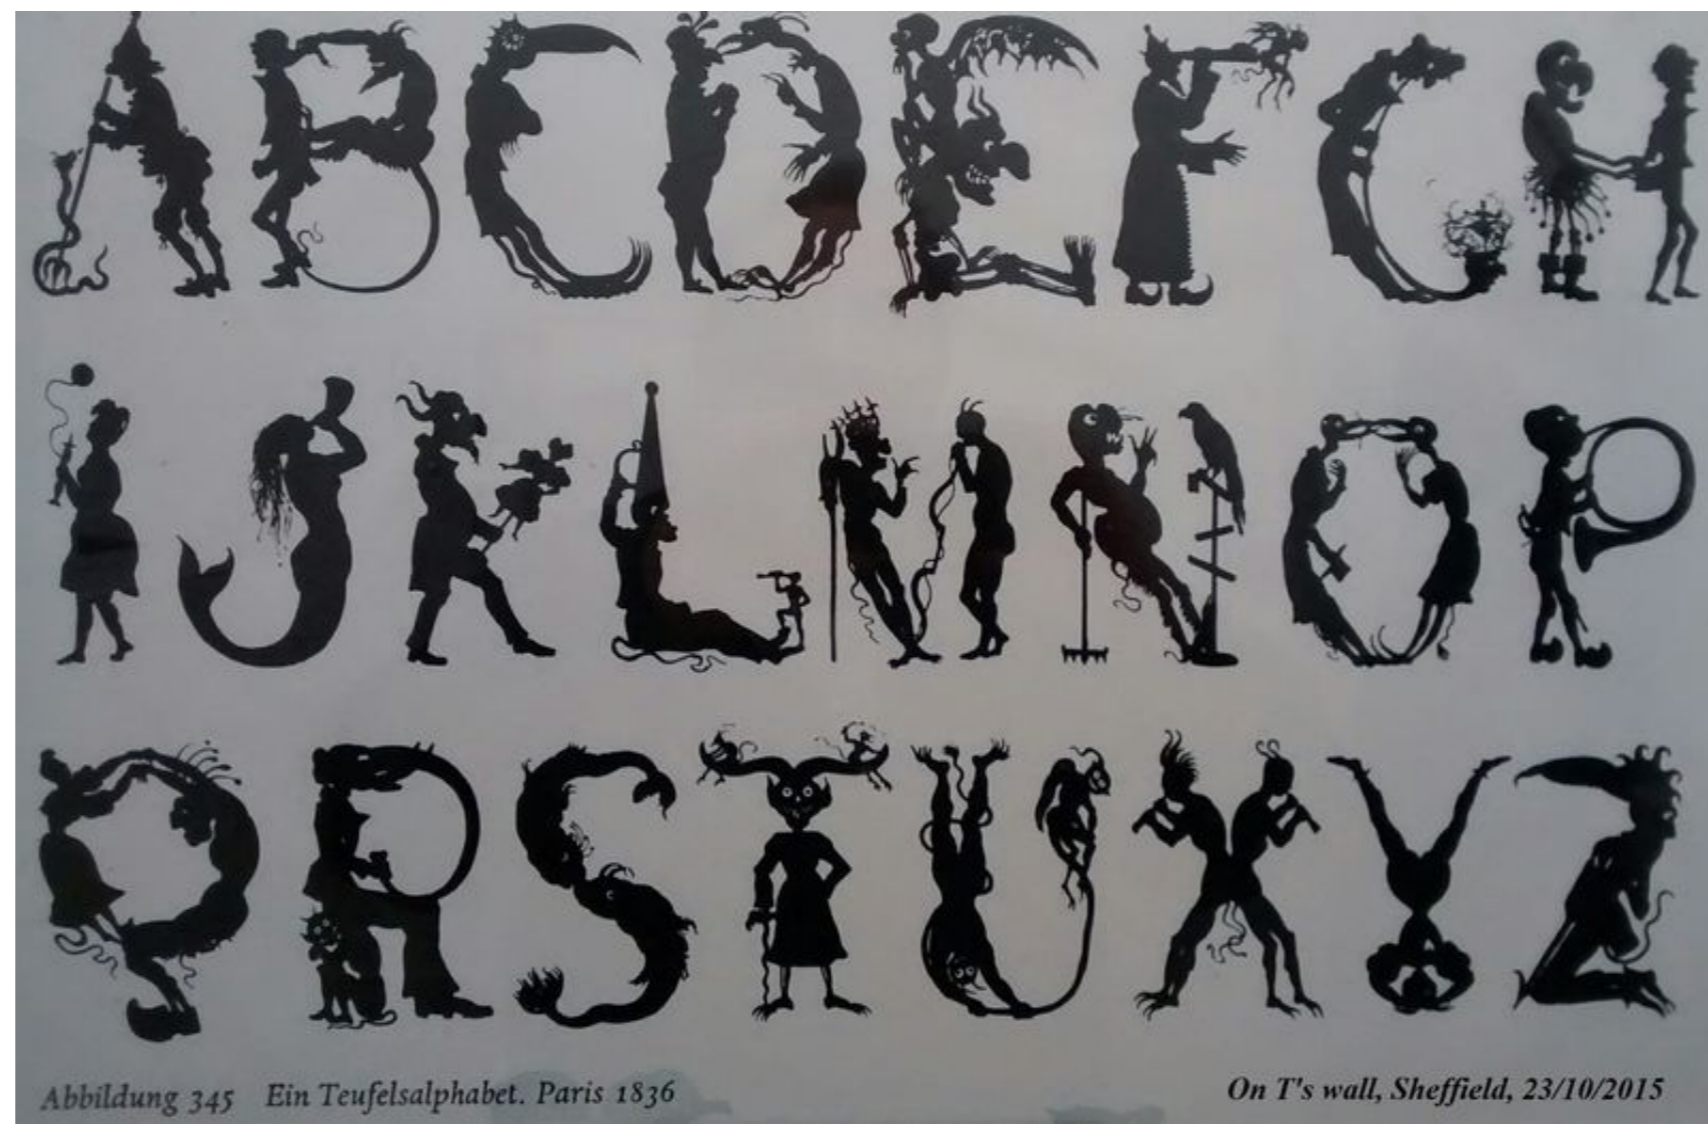 A B C D E F G H
I J K L M N O P
Q R S T U X Y Z
Abbildung 345 Ein Teufelsalphabet. Paris 1836
On T's wall, Sheffield, 23/10/2015